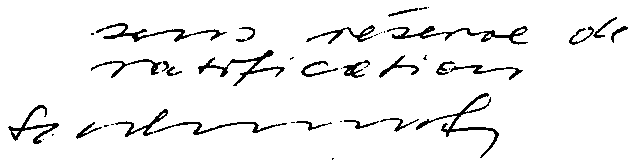 sous réserve de
ratification